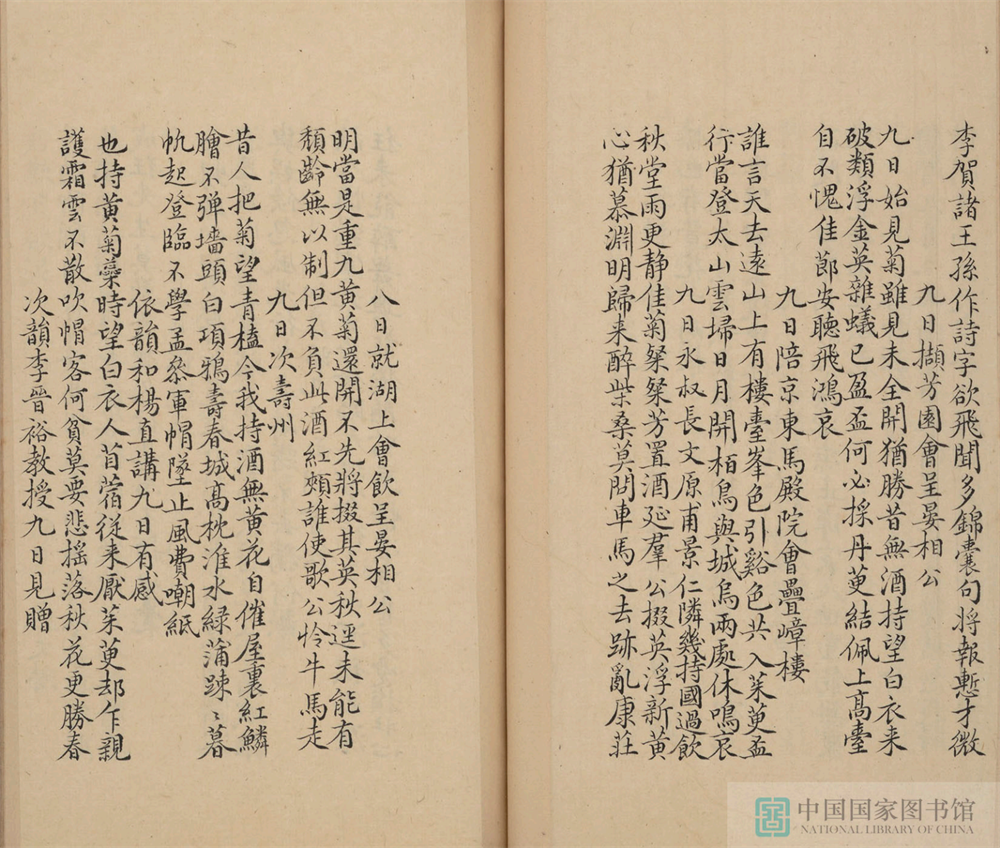 李賀諸王孫作詩字欲飛聞多錦囊句將報慙才微
九日擷芳園會呈晏相公
九日始見菊雖見未全開猶勝昔無酒持望白衣来
破類浮金英雜蟻已盈盃何必採丹萸結佩上髙臺
自不愧佳節安聽飛鴻哀
九日陪京東馬殿院會疊嶂樓
誰言天去遠山上有樓臺峯色引谿色共入茱萸盃
行當登太山雲埽日月開栢鳥與城烏兩處休鳴哀
九日永叔長文原甫景仁隣幾持國過飲
秋堂雨更静佳菊粲粲芳置酒延羣公掇英浮新黄
心猶慕淵明歸来醉柴桑莫問車馬之去跡亂康莊
八日就湖上會飲呈晏相公
明當是重九黄菊還開不先將掇其英秋逕未能有
頽齡無以制但不負此酒紅頰誰使歌公怜牛馬走
九日次壽州
昔人把菊望青榼今我持酒無黄花自催屋裏紅鱗
膾不弹墻頭白項鴉壽春城髙枕淮水緑蒲踈〻暮
帆起登臨不學孟叅軍帽墜止風費嘲紙
依韻和楊直講九日有感
也持黄菊蘂時望白衣人苜蓿従来厭茱萸却乍親
護霜雲不散吹帽客何貧莫要悲揺落秋花更勝春
次韻李晉裕教授九日見贈
中国国家图书馆
NATIONAL LIBRARY OF CHINA